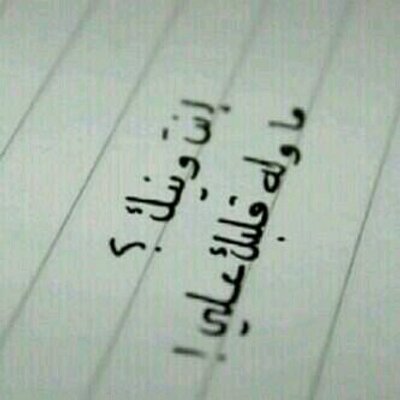 إنت وينك ؟
ما وله قلبك علي !